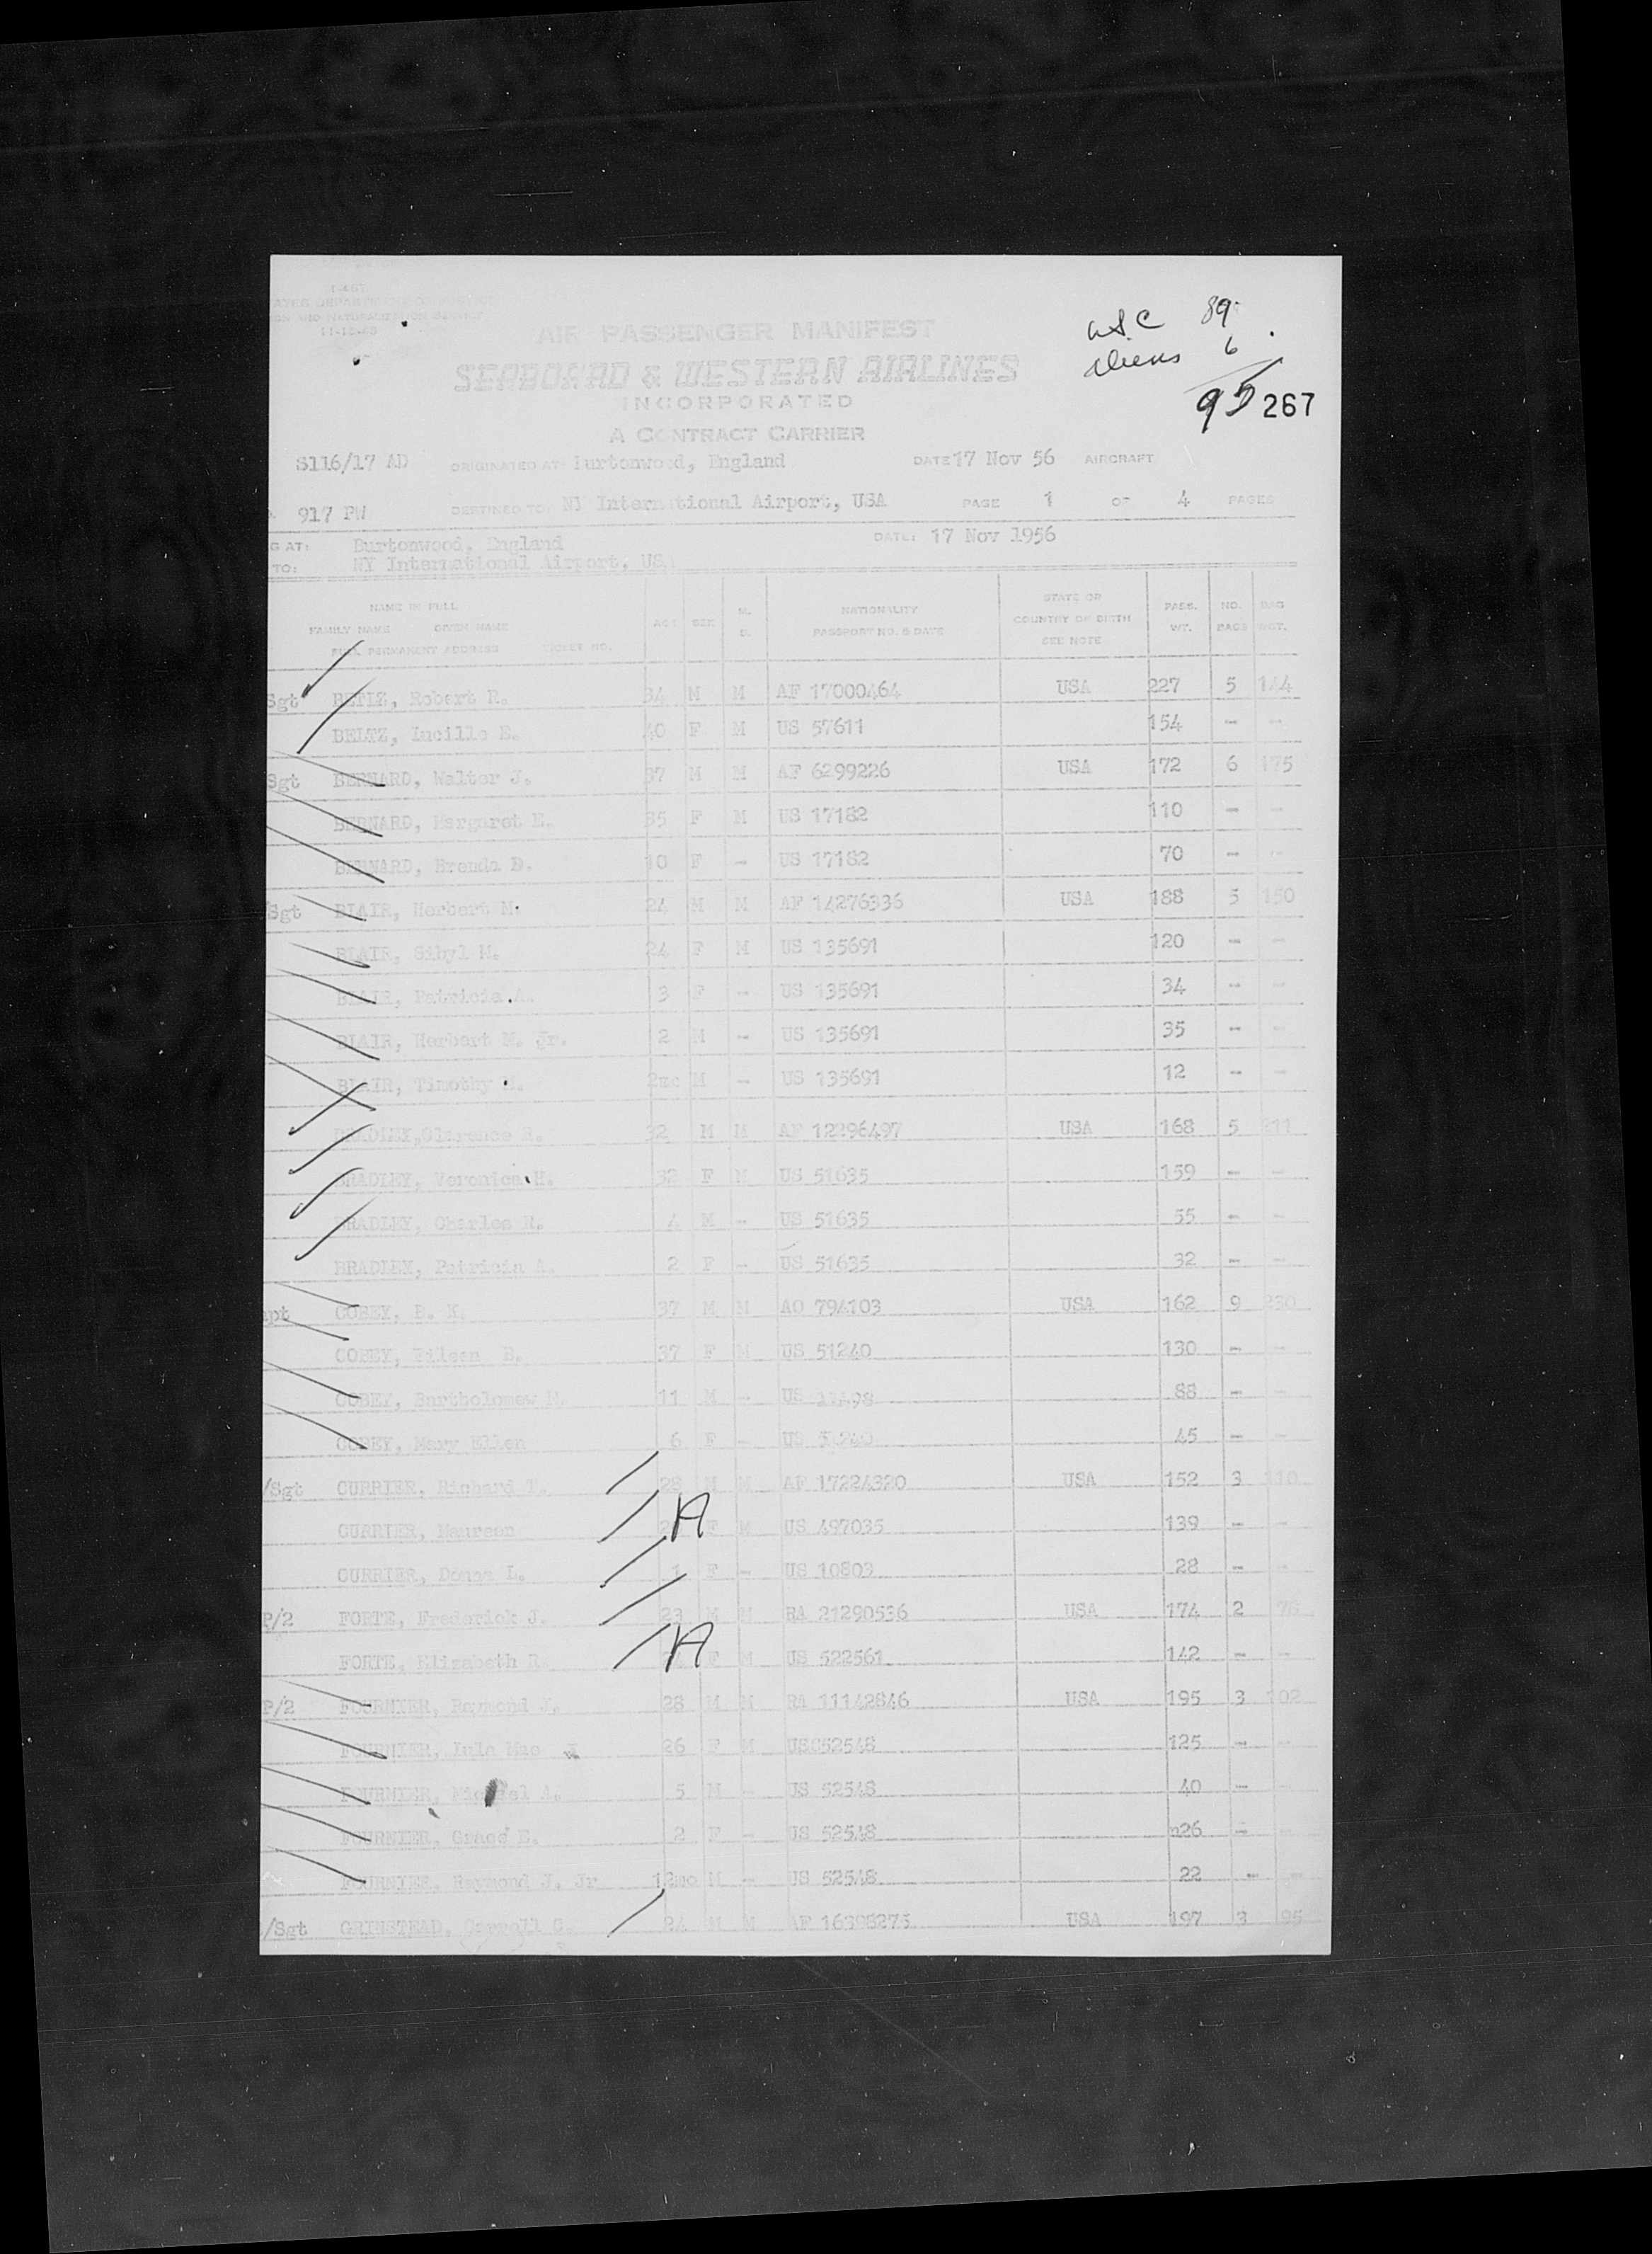 I-467
11-15-53
AIR PASSENGER MANIFEST
USC 89
Aliens 6
95 267
SEABOARD & WESTERN AIRLINES
INCORPORATED
A CONTRACT CARRIER
S116/17 AD ORIGINATED AT: Burtonwood, England DATE 17 Nov 56 AIRCRAFT
917 PW DESTINED TO: NY International Airport, USA PAGE 1 OF 4 PAGES
G AT: Burtonwood, England DATE: 17 Nov 1956
TO: NY International Airport, US
NAME IN FULL AGE SEX M. S. NATIONALITY STATE OR PASS. NO. BAG
FAMILY NAME GIVEN NAME PASSPORT NO. & DATE COUNTRY OF BIRTH WT. BAGS WGT.
FULL PERMANENT ADDRESS TICKET NO. SEE NOTE
Sgt Robert R. 34 M M AF 17000464 USA 227 5 144
BELTZ, Lucille E. 40 F M US 57611 154 - -
Sgt BERNARD, Walter J. 37 M M AF 6299226 USA 172 6 175
BERNARD, Margaret E. 35 F M US 17182 110 - -
BERNARD, Brenda D. 10 F - US 17182 70 - -
/Sgt BLAIR, Herbert M. 24 M M AF 14276336 USA 188 5 150
BLAIR, Sibyl M. 24 F M US 135691 120 - -
BLAIR, Patricia A. 3 F - US 135691 34 - -
BLAIR, Herbert M. Jr. 2 M - US 135691 35 - -
BLAIR, Timothy M. 2mo M - US 135691 12 - -
BRADLEY, Clarence R. 32 M M AF 12296497 USA 168 5 211
BRADLEY, Veronica H. 32 F M US 51635 159 - -
BRADLEY, Charles R. 4 M - US 51635 55 - -
BRADLEY, Patricia A. 2 F - US 51635 32 - -
apt COBEY, B. K. 37 M M AO 794103 USA 162 9 230
COBEY, Eileen B. 37 F M US 51240 130 - -
COBEY, Bartholomew M. 11 M - US 88 - -
COBEY, Mary Ellen 6 F - US 45 - -
/Sgt CURRIER, Richard 28 M M AF 17224320 USA 152 3 110
CURRIER, Maureen A F M US 497035 139 - -
CURRIER, Donna L. 1 F - US 10803 28 - -
P/2 FORTE, Frederick J. 23 M M RA 21290536 USA 174 2 78
FORTE, Elizabeth R. A F M US 522561 142 - -
P/2 FOURNIER, Raymond J. 28 M M RA 11142846 USA 195 3 102
FOURNIER, Iula Mae J 26 F M US052548 125 - -
FOURNIER, Michael A. 5 M - US 52548 40 - -
FOURNIER, Grace E. 2 F - US 52548 26 - -
FOURNIER, Raymond J. Jr M - US 52548 22 - -
/Sgt GRINSTEAD, G. 24 M M AF 16398273 USA 197 3 95